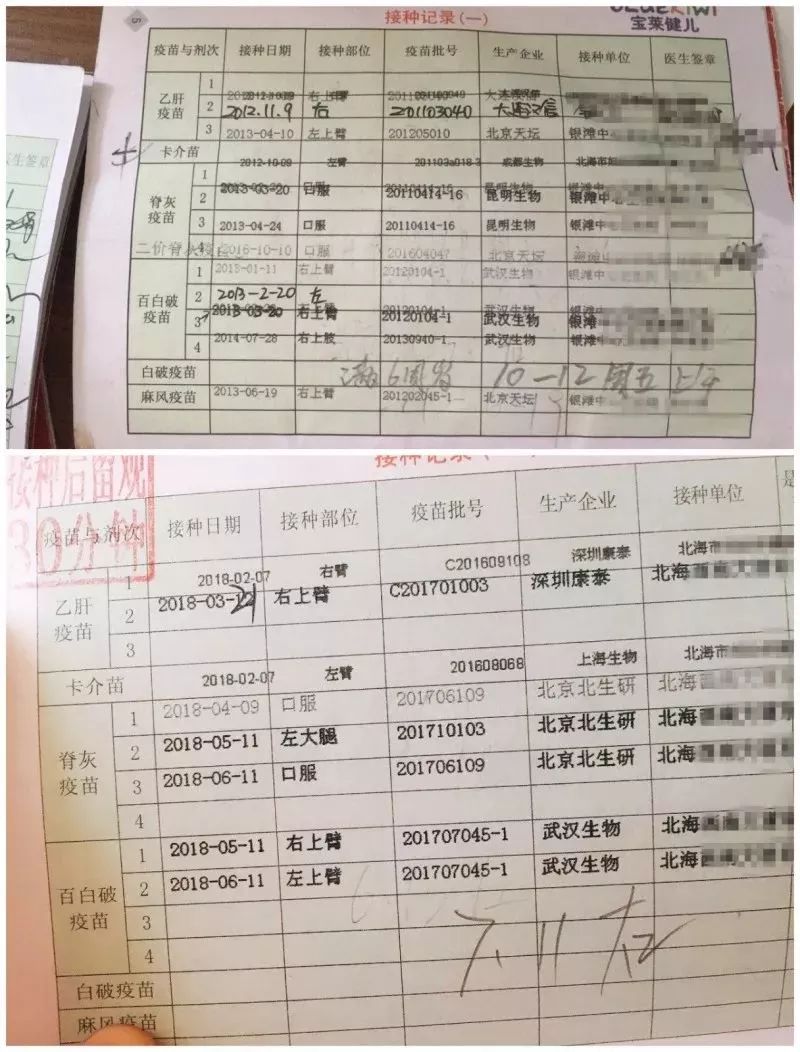 5
接种记录(一)
宝莱健儿
疫苗与剂次 接种日期 接种部位 疫苗批号 生产企业 接种单位 医生签章
乙肝疫苗
1 右上臂
2 2012.11.9 右 201103040
3 2013-04-10 左上臂 201205010 北京天坛 银滩中
卡介苗 2012-10-09 左臂 201103a018-3 成都生物 北海市
脊灰疫苗
1
2 2013-03-20 口服 20110414-16 昆明生物 银滩中
3 2013-04-24 口服 20110414-16 昆明生物 银滩中
4
二价脊灰疫 2016-10-10 口服 201604047 北京天坛
百白破疫苗
1 2013-01-11 右上臂 20120104-1 武汉生物 银滩中
2 2013-2-20 左 20120104-1 武汉生物 银滩中
3 2013-03-20 右上臂 20120104-1 武汉生物 银滩中
4 2014-07-28 右上肢 20130940-1 武汉生物 银滩中
白破疫苗 满6周岁 10-12周五上午
麻风疫苗 2013-06-19 右上臂 201202045-1 北京天坛 银滩中
生签章
接种后留观
30分钟
接种记录(
疫苗与剂次 接种日期 接种部位 疫苗批号 生产企业 接种单位 是
乙肝疫苗
1 2018-02-07 右臂 C201609108 深圳康泰 北海市
2 2018-03- 右上臂 C201701003 深圳康泰 北海
3
卡介苗 2018-02-07 左臂 201608068 上海生物 北海市
脊灰疫苗
1 2018-04-09 口服 201706109 北京北生研 北海
2 2018-05-11 左大腿 201710103 北京北生研 北海
3 2018-06-11 口服 201706109 北京北生研 北海
4
百白破疫苗
1 2018-05-11 右上臂 201707045-1 武汉生物 北海
2 2018-06-11 左上臂 201707045-1 武汉生物 北海
3
4
白破疫苗
麻风疫苗